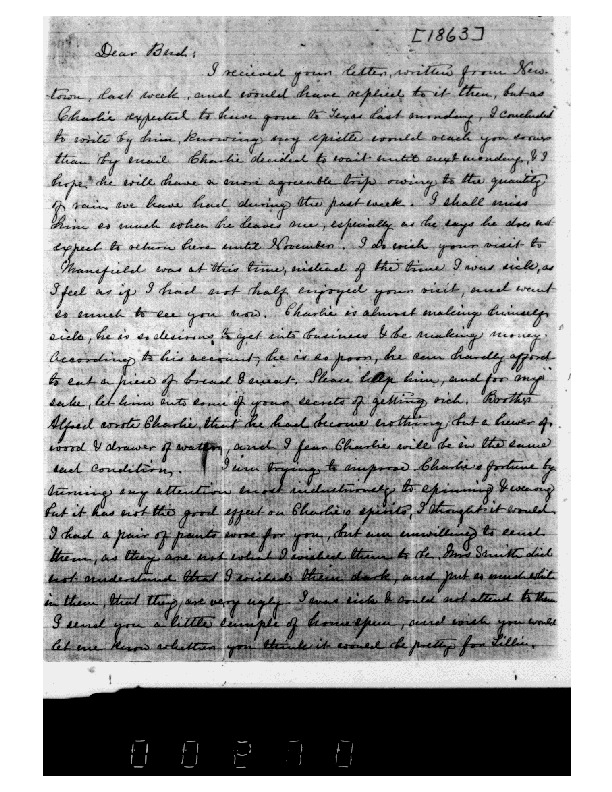 [1863]
Dear Bud;
I recieved your letter, written from New
town, last week, and would have replied to it then, but as
Charlie expected to have gone to Texas last monday, I concluded
to write by him, knowing my epistle would reach you sooner
than by mail. Charlie decided to wait until next monday, & I
hope he will have a more agreeable trip owing to the quantity
of rain we have had during the past week. I shall miss
him so much when he leaves me, especially as he says he does not
expect to return here until November. I do wish your visit to
Mansfield was at this time, instead of the time I was sick, as
I feel as if I had not half enjoyed your visit, and want
so much to see you now. Charlie is almost making himself
sick, he is so desirous to get into business & be making money.
According to his account, he is so poor, he can hardly afford
to eat a piece of bread & meat. Please help him, and for my
sake, let him into some of your secrets of getting rich. Brother
Alfred wrote Charlie, that he had become nothing, but a hewer of
wood & drawer of water, and I fear Charlie will be in the same
sad condition. I am trying to improve Charlie's fortune by
turning my attention most industriously to spinning & weaving
but it has not the good effect on Charlie's spirits, I thought it would.
I had a pair of pants wove for you, but am unwilling to send
them, as they are not what I wished them to be. Mrs Smith did
not understand that I wished them dark, and put so much white
in them, that they are very ugly. I was sick & could not attend to them
I send you a little sample of homespun, and wish you would
let me know whether you think it would be pretty for Lillie.
00270